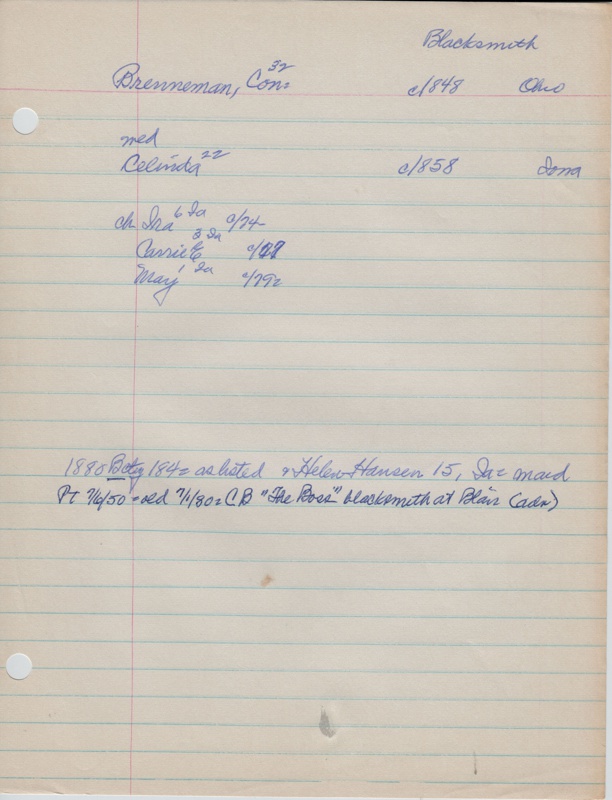 Blacksmith
Brenneman, Con= 32 c/1848 Ohio
med
Celinda 22 c/1858 Iowa
ch Ira 6 Ia c/74
Carrie E 3 Ia
May 1 Ia c/79=
1880 184= as listed & Helen Hansen 15, Ia= maid
Pt 7/6/50 =old 7/1/80= CB "The Boss" blacksmith at Blair (adv)